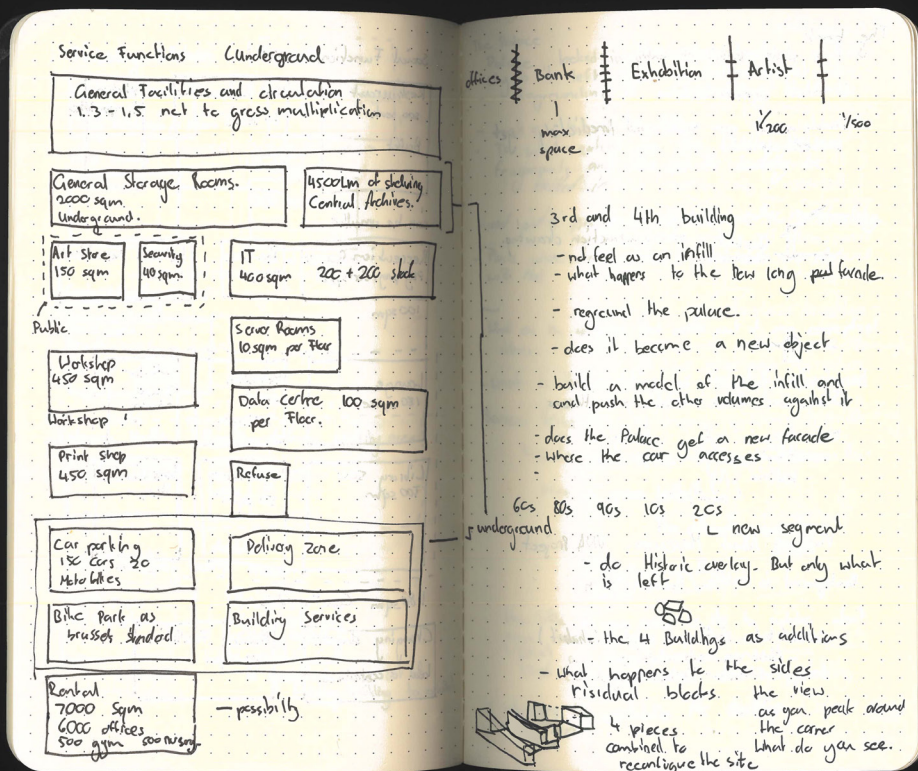 Service Functions (underground
General Facilities and circulation
1.3 - 1,5 net to gross multiplication
General Storage Rooms.
2000 sqm
Underground.
4500Lm of shelving
Central Archives.
Art Store
150 sqm
Security
40 sqm.
IT
400 sqm 200 + 200 stock
Public
Server Rooms
10 sqm per Floor
Workshop
450 sqm
Workshop
Data Centre 100 sqm
per Floor.
Print Shop
450 sqm
Refuse
Car parking
150 Cars 20
Motorbikes
Delivery Zone
Bike Park as
brussels standard
Building Services
Rental
7000 sqm
6000 offices
500 gym 500 nursery
- possibility
offices Bank Exhibition Artist
max
space
1/200 1/500
3rd and 4th building
- not feel as an infill
- what happens to the how long facade.
- reground the palace.
- does it become a new object
- build a model of the infill and
and push the other volumes against it
- does the Palace get a new facade
- where the car accesses
-
60s 80s 90s 10s 20s
underground
new segment
- do Historic overlay. But only what
is left
- the 4 Buildings as additions
- what happens to the sides
risidual blocks
the view
as you peak around
the corner
What do you see.
4 pieces
combined to
reconfigure the site